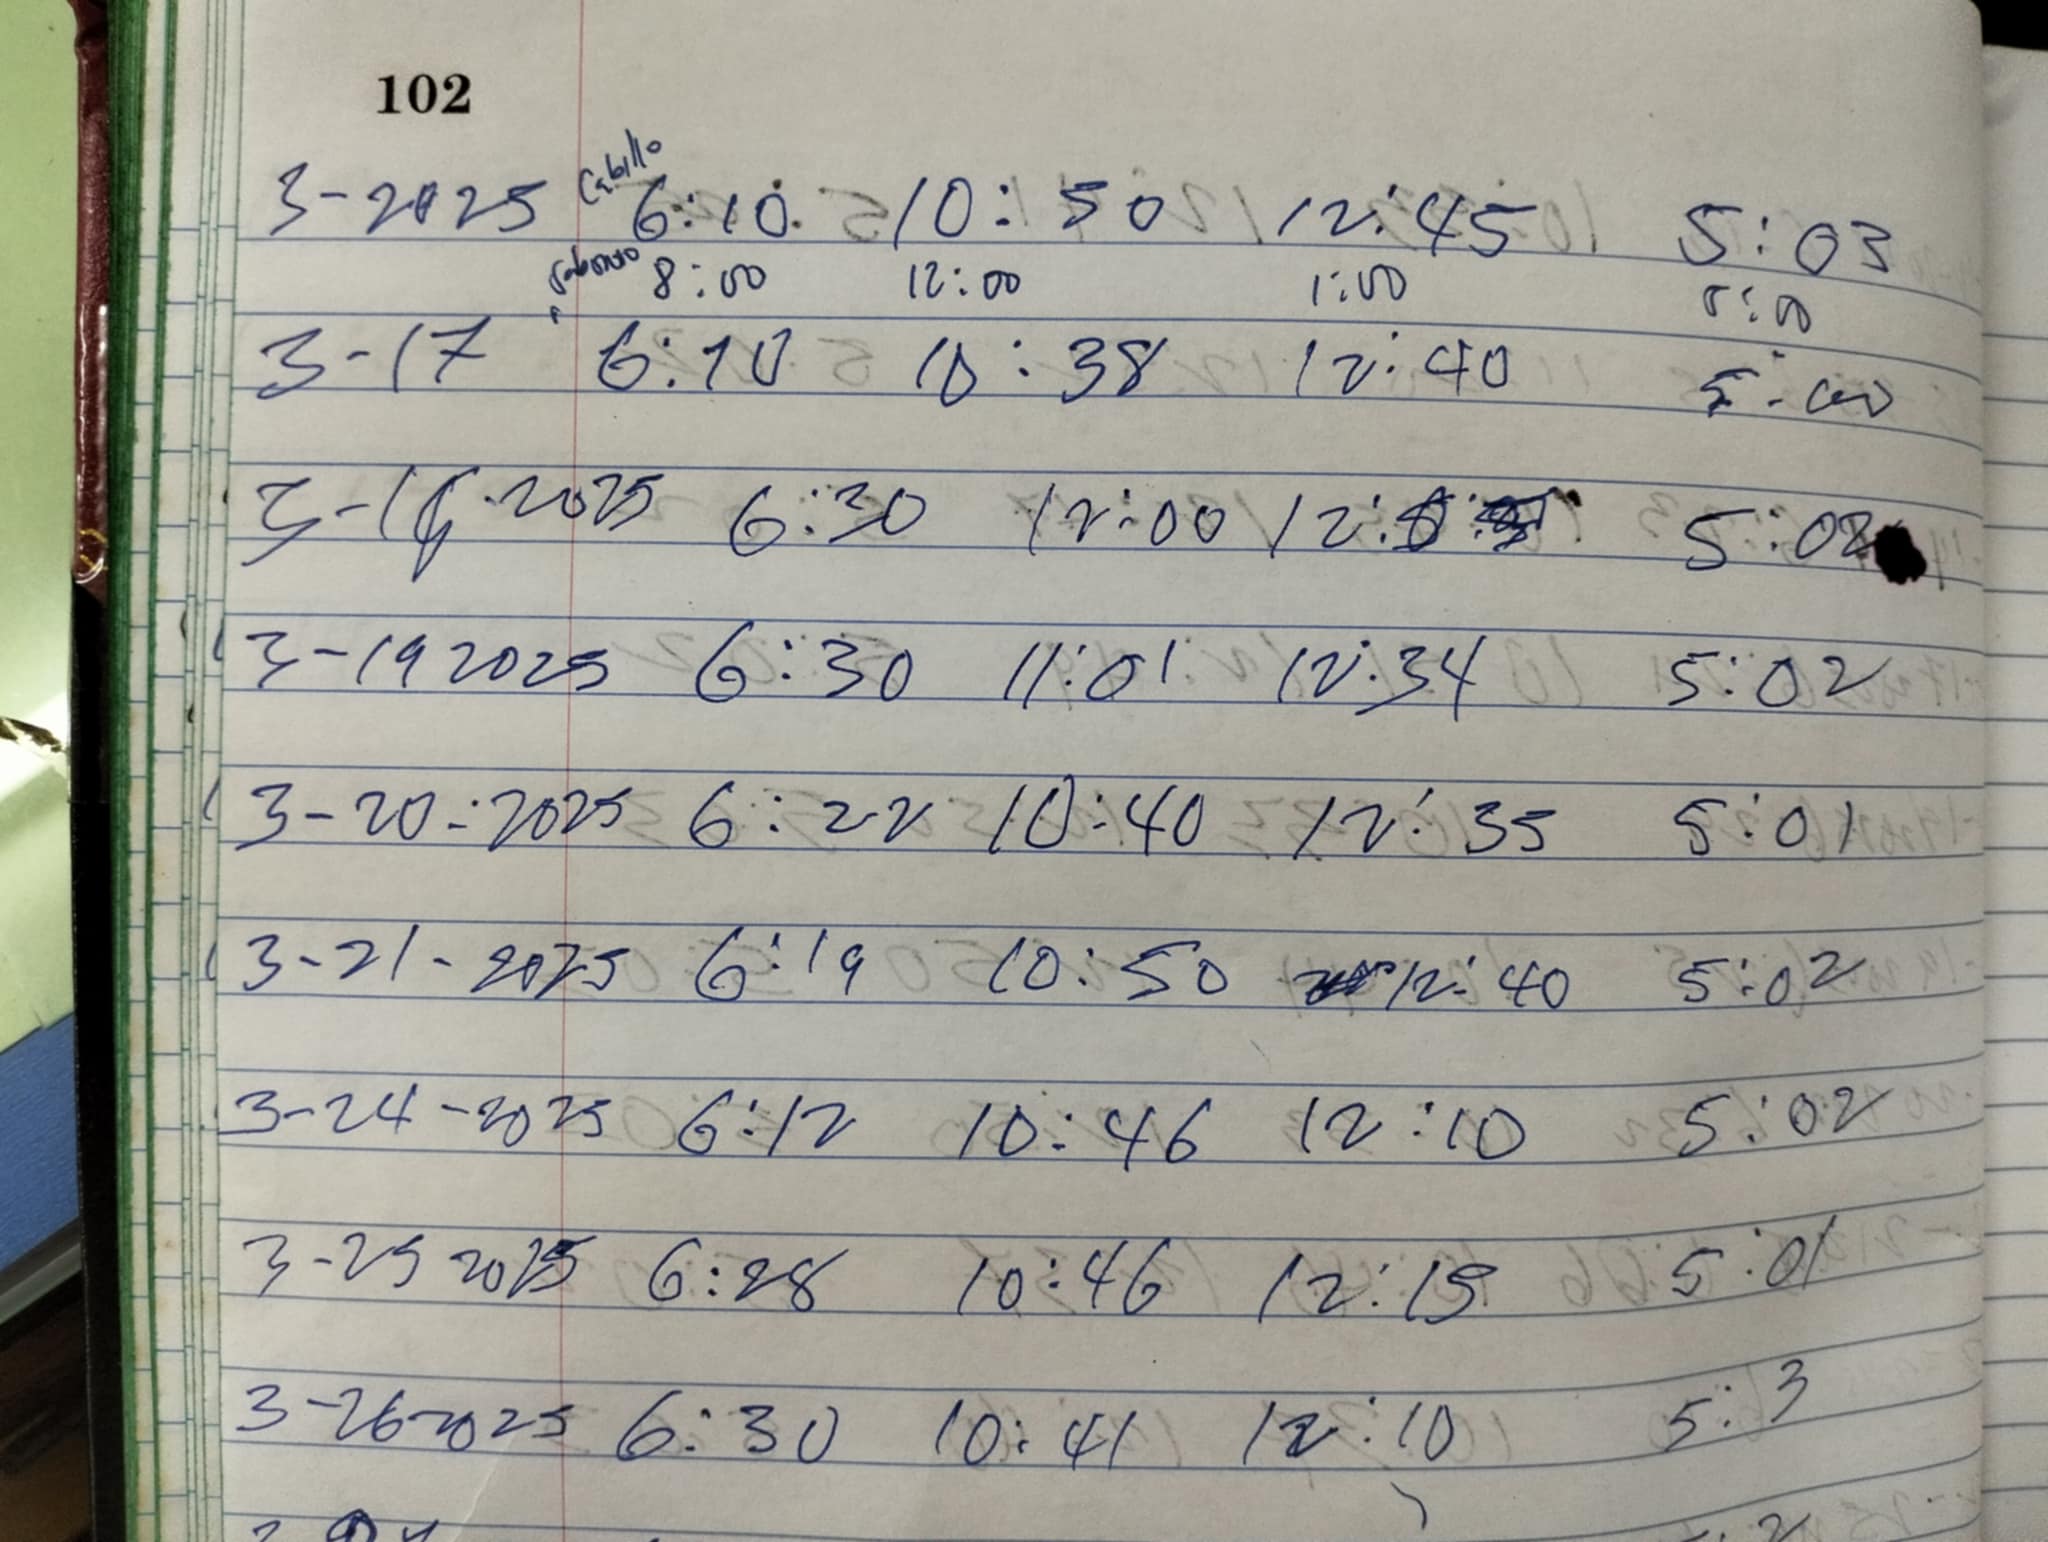 102
Cabillo
3-2025 6:10 10:50 12:45 5:03
8:00 12:00 1:00 5:00
3-17 6:10 10:38 12:40 5:00
3-18-2025 6:30 12:00 12: 5:02
3-19 2025 6:30 11:01 12:34 5:02
3-20-2025 6:22 10:40 12:35 5:01
3-21-2025 6:19 10:50 12:40 5:02
3-24-2025 6:12 10:46 12:10 5:02
3-25 2025 6:28 10:46 12:15 5:01
3-26-2025 6:30 10:41 12:10 5:3